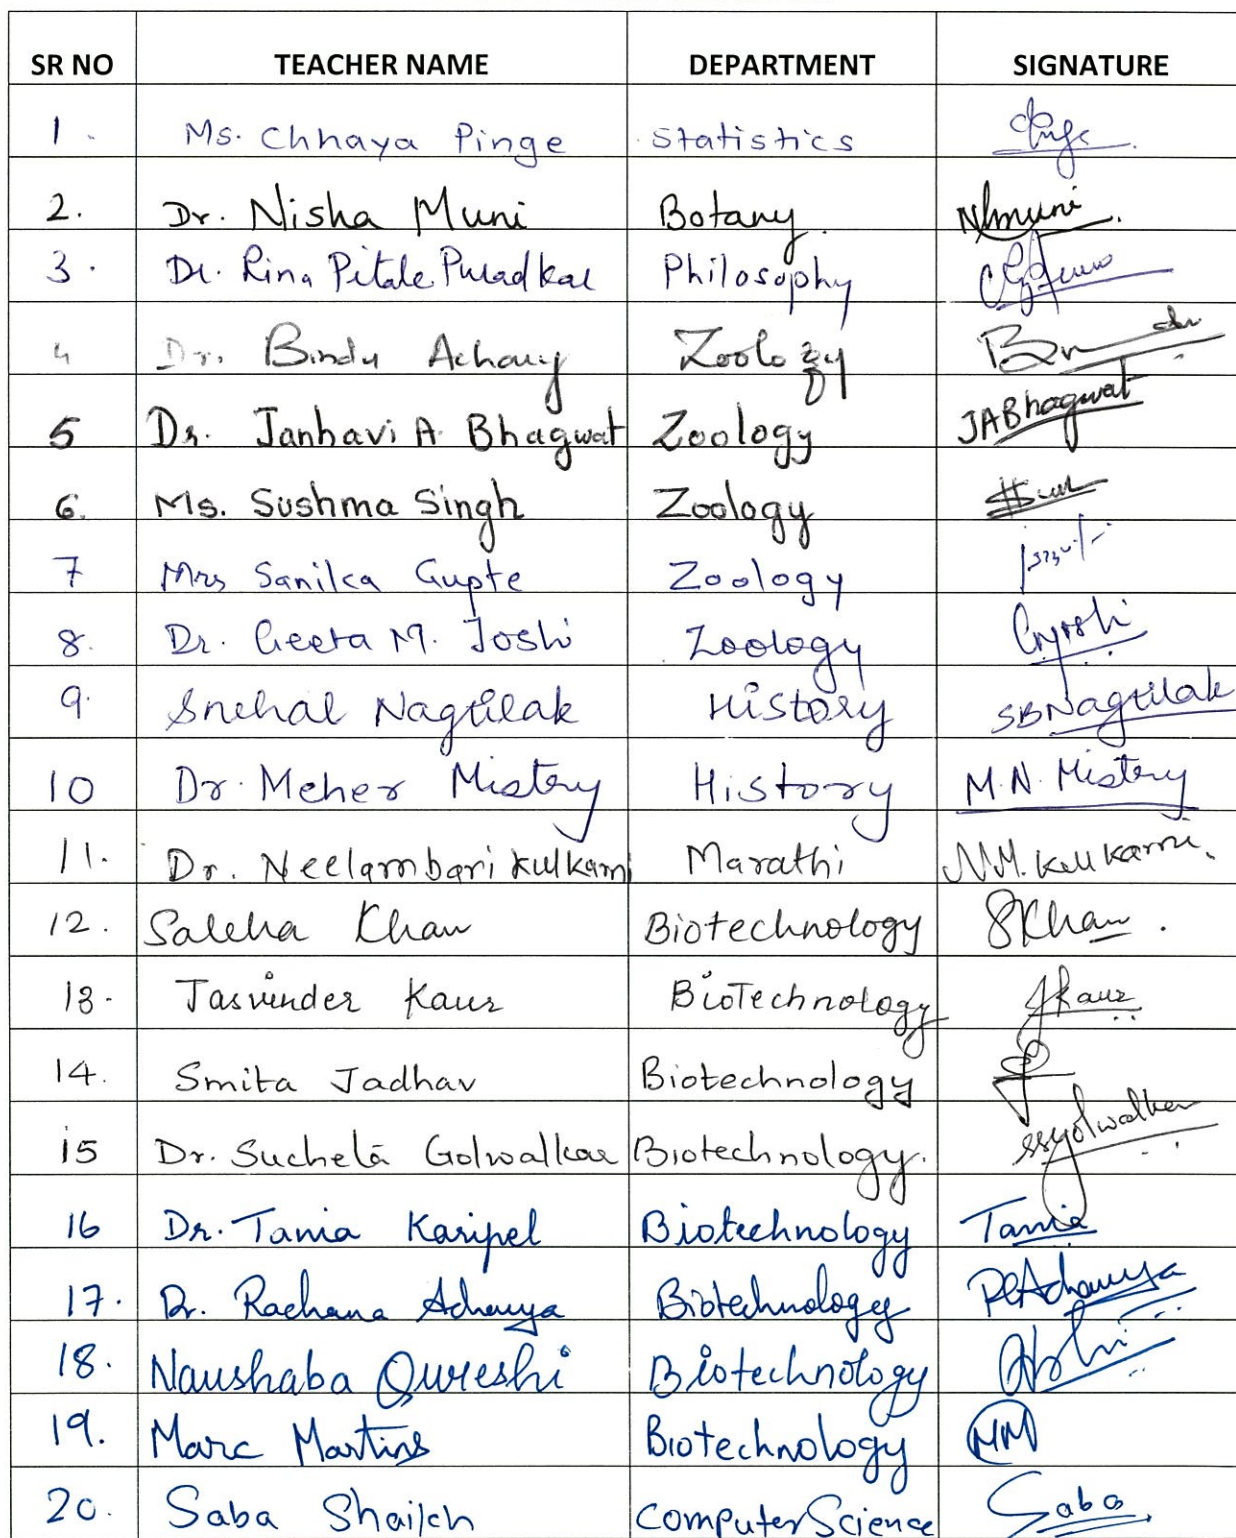 SR NO TEACHER NAME DEPARTMENT SIGNATURE
1. Ms. Chhaya Pinge Statistics
2. Dr. Nisha Muni Botany NMuni
3. Dr. Rina Pitale Puradkar Philosophy
4 Dr. Bindu Achary Zoology
5 Dr. Janhavi A. Bhagwat Zoology JABhagwat
6. Ms. Sushma Singh Zoology
7 Mrs Sanika Gupte Zoology
8. Dr. Geeta M. Joshi Zoology
9. Snehal Nagtilak History SBNagtilak
10 Dr. Meher Mistry History M.N. Mistry
11. Dr. Neelambari Kulkarni Marathi NM. Kulkarni.
12. Saleha Khan Biotechnology SKhan.
13. Jasvinder Kaur BioTechnology JKaur
14. Smita Jadhav Biotechnology
15 Dr. Sucheta Golwalkar Biotechnology. SSGolwalkar
16 Dr. Tania Karipel Biotechnology Tania
17. Dr. Rachana Acharya Biotechnology RAcharya
18. Naushaba Qureshi Biotechnology
19. Marc Martins Biotechnology MM
20. Saba Shaikh Computer Science Saba